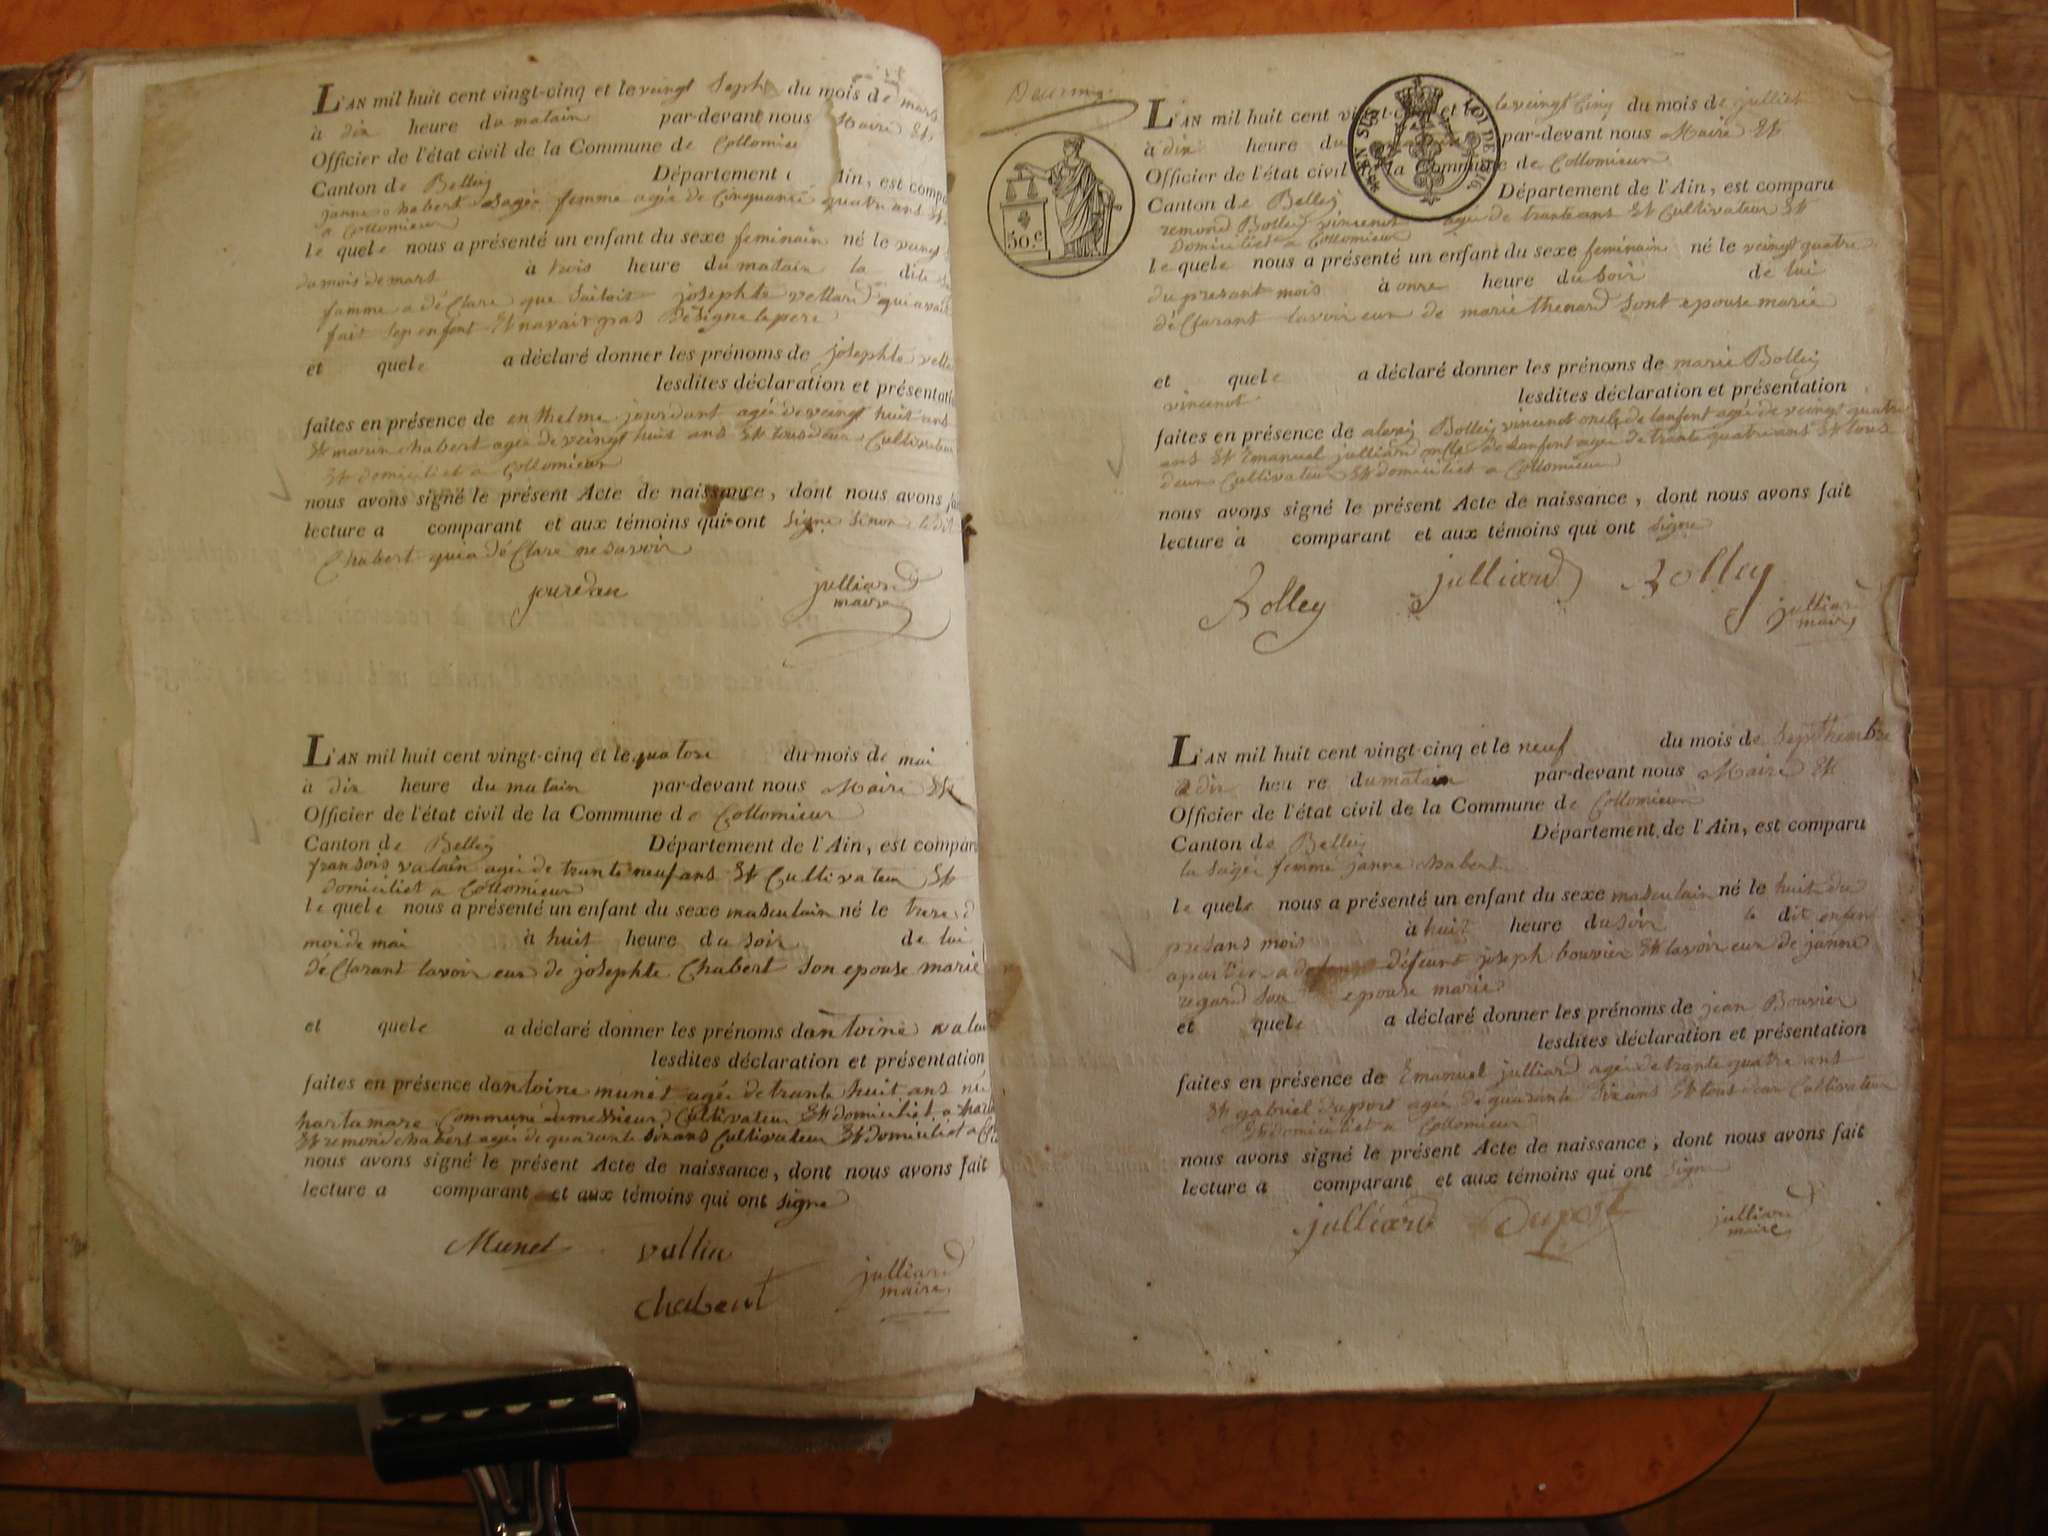 L'AN mil huit cent vingt-cinq et le veingt Septs du mois de mars
à dix heure du matain par-devant nous Maire Et
Officier de l'état civil de la Commune de Collomieu
Canton de Belley Département Ain, est comp
janne chabert Sagée femme agée de Cinquante quatre ans Et
a Collomieux
le quele nous a présenté un enfant du sexe feminain né le veingt
du mois de mars à trois heure du matain la dite
famme a déClare que Saitoit josephte vettard qui avait
fait Sep enfent Et navait pas Désigne le pere
et quele a déclaré donner les prénoms de josephte vetta
lesdites déclaration et présentati
faites en présence de enthelme jourdant agée de veingt huit ans
Et marin chabert agée de veingt huit ans Et tous deux Cultivateur
Et domiciliet a Collomieux
nous avons signé le présent Acte de naissance, dont nous avons fai
lecture a comparant et aux témoins qui ont Signe Sinon le dit
Chabert qui a déClare ne Savoir
jouredan julliard
maire
L'AN mil huit cent vingt-cinq et le quatore du mois de mai
à dix heure du matain par-devant nous Maire Et
Officier de l'état civil de la Commune de Collomieux
Canton de Belley Département de l'Ain, est comparu
fransois valain agée de trante neuf ans Et Cultivateur Et
domiciliet a Collomieux
le quele nous a présenté un enfant du sexe masculain né le trere d
moi de mai à huit heure du Soir de lui
déClarant lavoir eux de josephte Chabert Son epouse marié
et quele a déclaré donner les prénoms dantoine vala
lesdites déclaration et présentation
faites en présence dantoine munet agée de trante huit ans né
hartamare Commune Cultivateur Et domiciliet a
Et remond chabert agée de quarante Sixans Cultivateur Et domiciliet a
nous avons signé le présent Acte de naissance, dont nous avons fait
lecture a comparant et aux témoins qui ont Signe
Munet vallin
julliard
maire
chabeut
50.c
LOI DE 1816
L'AN mil huit cent vingt-cinq et le veingt Cinq du mois de julliet
à dix heure du par-devant nous Maire Et
Officier de l'état civil de la Commune de Collomieux
Canton de Belley Département de l'Ain, est comparu
remond Bolley vincenot agée de trante ans Et Cultivateur Et
domiciliet a Collomieux
le quele nous a présenté un enfant du sexe feminain né le veingt quatre
du presant mois à onre heure du Soir de lui
déClarant lavoir eux de marie thenard Sont epouse marié
et quele a déclaré donner les prénoms de marie Bolley
vincenot lesdites déclaration et présentation
faites en présence de alexis Bolley vincenot oncle de lanfent agée de veingt quatre
ans Et Emanuel julliard oncle de lanfont agée de trante quatre ans Et tous
deux Cultivateur Et domiciliet a Collomieux
nous avons signé le présent Acte de naissance, dont nous avons fait
lecture à comparant et aux témoins qui ont Signe
Bolley julliard Bolley
julliard
maire
L'AN mil huit cent vingt-cinq et le neuf du mois de Septhembre
a dix heure du matain par-devant nous Maire Et
Officier de l'état civil de la Commune de Collomieux
Canton de Belley Département de l'Ain, est comparu
la Sagée femme janne chabert
le quele nous a présenté un enfant du sexe masculain né le huit du
presans mois à huit heure du Soir le dit enfen
apartien a défeunt joseph bouvier Et lavoir eux de janne
regard Son epouse marie
et quele a déclaré donner les prénoms de jean Bouvier
lesdites déclaration et présentation
faites en présence de Emanuel julliard agée de trante quatre ans
Et gabriel duport agée de quarante Six ans Et tous deux Cultivateur
Et domiciliet a Collomieux
nous avons signé le présent Acte de naissance, dont nous avons fait
lecture a comparant et aux témoins qui ont Signe
julliard Duport julliard
maire